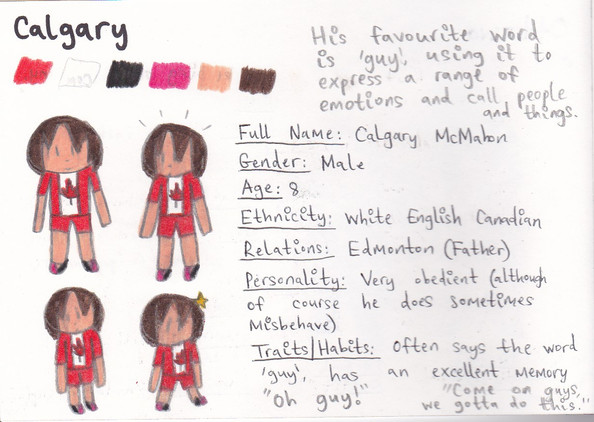 Calgary
His favourite word
is 'guy', using it to
express a range of
emotions and call people
and things.
Full Name: Calgary McMahon
Gender: Male
Age: 8
Ethnicity: White English Canadian
Relations: Edmonton (Father)
Personality: Very obedient (although
of course he does sometimes
misbehave)
Traits/Habits: Often says the word
'guy', has an excellent memory
"Oh guy!"
"Come on guys,
we gotta do this."